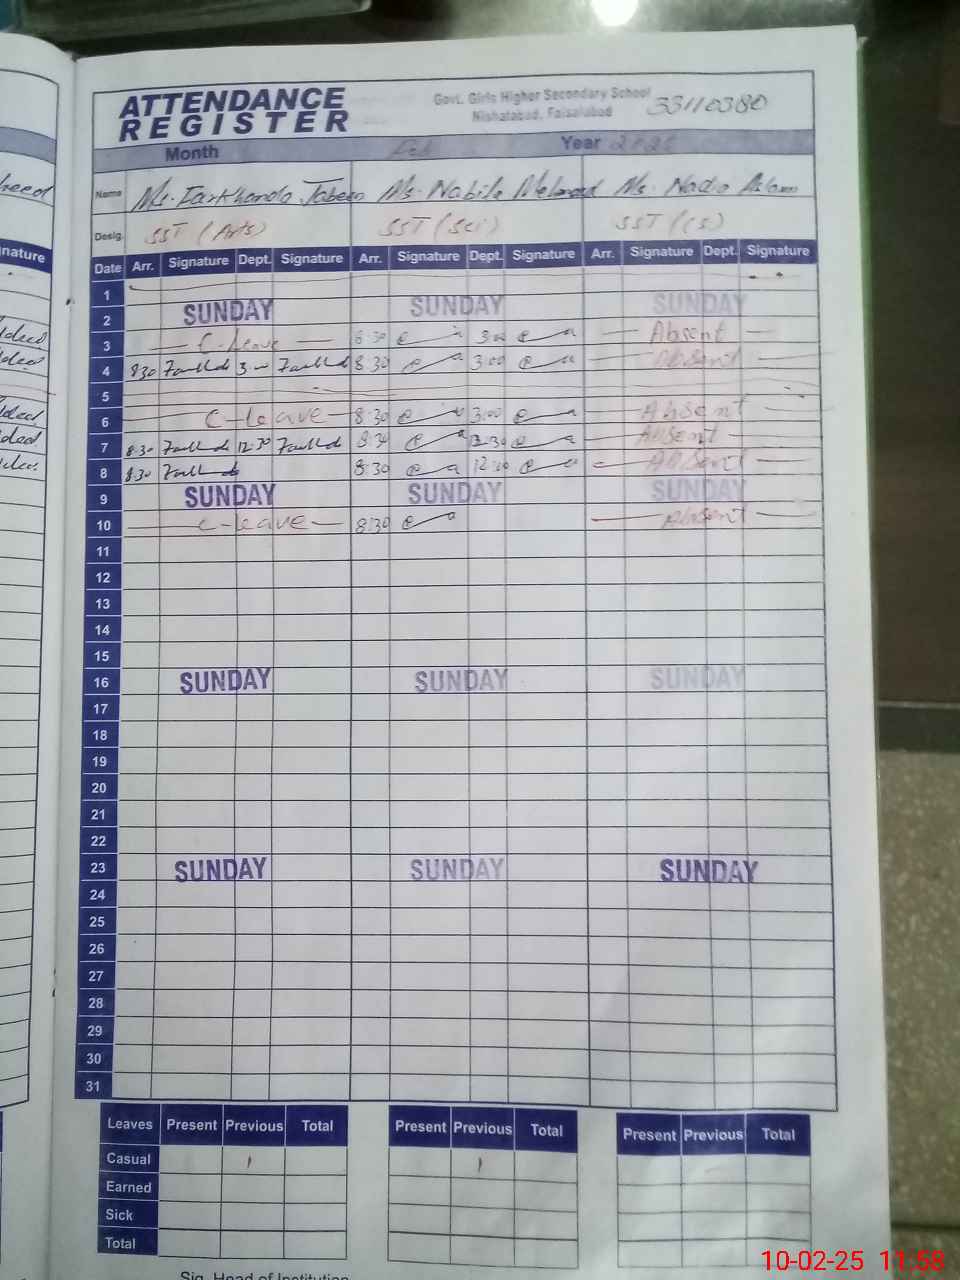 ATTENDANCE REGISTER
Govt. Girls Higher Secondary School
Nishatabad, Faisalabad
33110380
Month Feb Year 2025
Name Ms. Farkhanda Jabeen Ms. Nabila Ms. Nadia Aslam
Desig. SST (Arts) SST (Sci) SST (CS)
nature
Date Arr. Signature Dept. Signature Arr. Signature Dept. Signature Arr. Signature Dept. Signature
1
2 SUNDAY SUNDAY SUNDAY
3 C-Leave 8:30 3:00 Absent
4 8:30 3:00 8:30 3:00 Absent
5
6 C-Leave 8:30 3:00 Absent
7 8:30 12:30 8:30 12:30 Absent
8 8:30 8:30 Absent
9 SUNDAY SUNDAY SUNDAY
10 C-leave 8:30 Absent
11
12
13
14
15
16 SUNDAY SUNDAY SUNDAY
17
18
19
20
21
22
23 SUNDAY SUNDAY SUNDAY
24
25
26
27
28
29
30
31
Leaves Present Previous Total Present Previous Total Present Previous Total
Casual 1 1
Earned
Sick
Total
Sig. Head of Institution
10-02-25 11:58